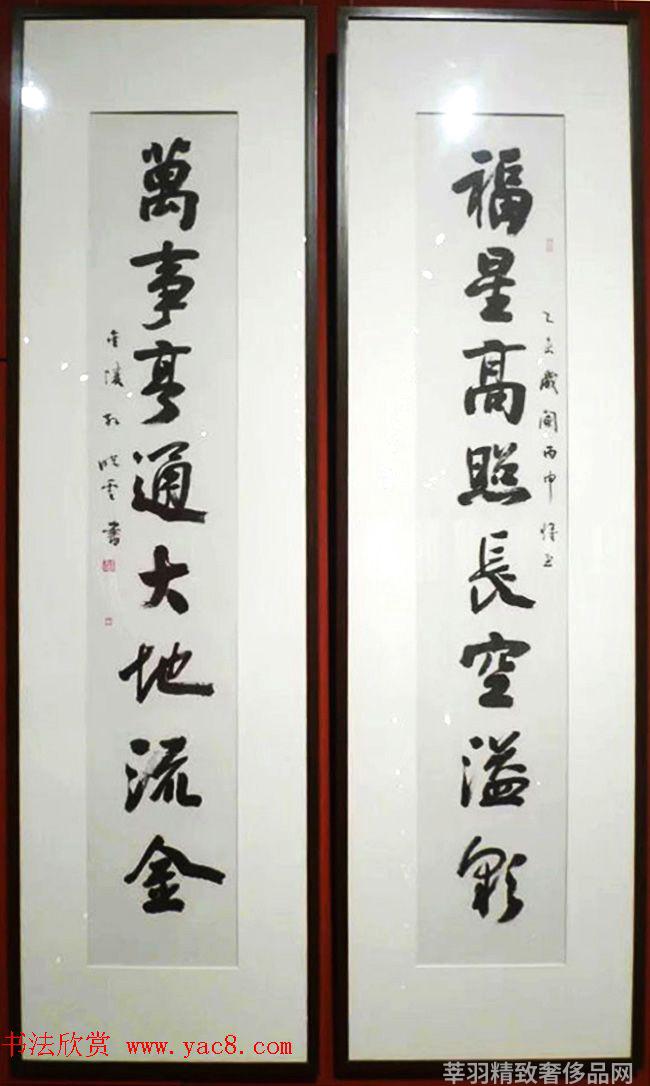 福星高照長空溢彩
乙未歲闌丙申將至
萬事亨通大地流金
金陵孫曉雲書
书法欣赏 www.yac8.com
莘羽精致奢侈品网